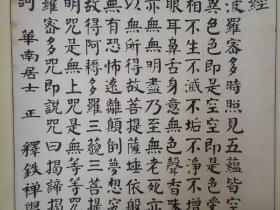 經
波羅蜜多時照見五蘊皆空
異色色即是空空即是色受
相不生不滅不垢不淨不增
眼耳鼻舌身意無色聲香味
亦無無明盡乃至無老死亦
以無所得故菩提薩埵依般
無有恐怖遠離顛倒夢想
故得阿耨多羅三藐三菩提
明咒是無上咒是無等等咒
羅蜜多咒即說咒曰揭諦揭
訶 華南居士 正 釋鉄禅